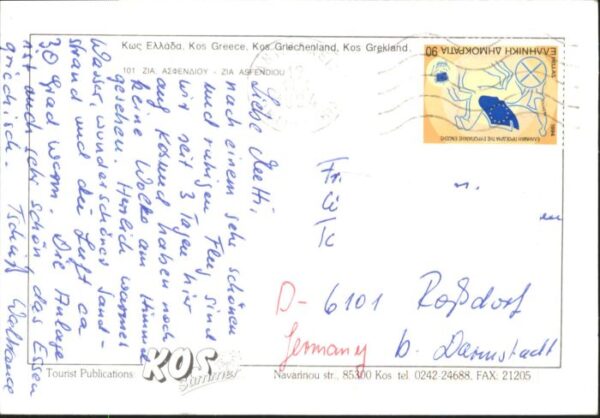 Κως Ελλάδα. Kos Greece, Kos Griechenland, Kos Grekland.
101 ΖΙΑ, ΑΣΦΕΝΔΙΟΥ - ZIA ASFENDIOU
Liebe
nach einem sehr schönen
und ruhigen Flug, sind
wir seit 3 Tagen hier
auf Kos und haben noch
keine Wolke am Himmel
gesehen. Herrlich warmes
Wasser, wunderschöner Sand-
strand und die Luft ca
30 Grad warm. Die Anlage
ist auch sehr schön das Essen
griechisch.- Tschüß
ΕΛΛΗΝΙΚΗ ΔΗΜΟΚΡΑΤΙΑ 90
HELLAS
1994
ΕΛΛΗΝΙΚΗ ΠΡΟΕΔΡΙΑ ΤΗΣ ΕΥΡΩΠΑΪΚΗΣ ΕΝΩΣΗΣ
D- 6101 Roßdorf
Germany b. Darmstadt
Tourist Publications KOS Summer Navarinou str., 85300 Kos tel. 0242-24688, FAX: 21205